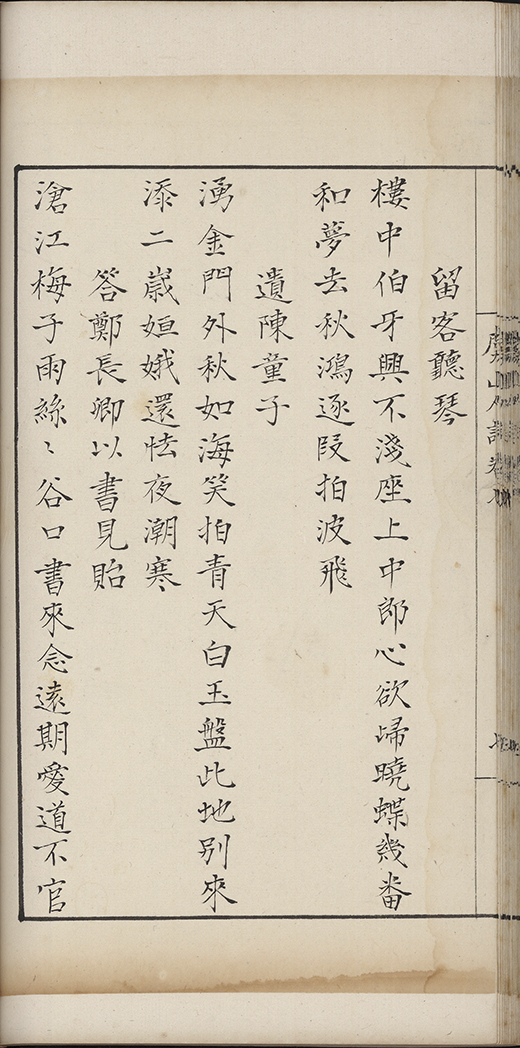 留客聽琴
樓中伯牙興不淺座上中郎心欲歸曉蝶幾番
和夢去秋鴻逐段拍波飛
遺陳童子
湧金門外秋如海笑拍青天白玉盤此地別來
添二歲姮娥還怯夜潮寒
答鄭長卿以書見貽
滄江梅子雨絲〻谷口書來念遠期愛道不官